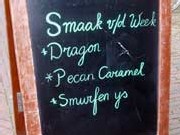 Smaak v/d Week
*Dragon
*Pecan Caramel
*Smurfen ys